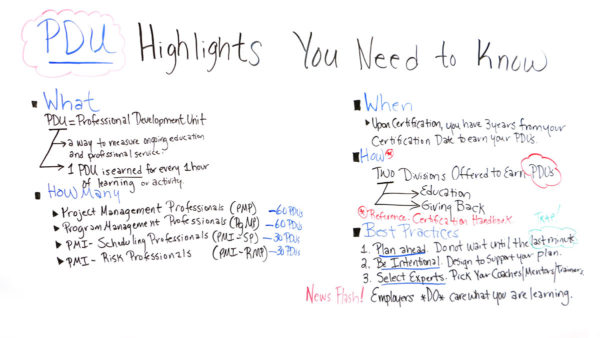 PDU Highlights You Need to Know
What
PDU = Professional Development Unit
a way to measure ongoing education
and professional service.
1 PDU is earned for every 1 hour
of learning or activity.
How Many
Project Management Professionals (PMP) - 60 PDUs
Program Management Professionals (PgMP) - 60 PDUs
PMI- Scheduling Professionals (PMI-SP) - 30 PDUs
PMI- Risk Professionals (PMI-RMP) - 30 PDUs
When
Upon Certification, you have 3 years from your
Certification Date to earn your PDUs.
How *
Two Divisions Offered to Earn PDUs
Education
Giving Back
* Reference: Certification Handbook
TRAP!
Best Practices
1. Plan ahead. Do not wait until the last minute.
2. Be Intentional. Design to Support your plan.
3. Select Experts. Pick Your Coaches/Mentors/Trainers
News Flash! Employers *DO* care what you are learning.